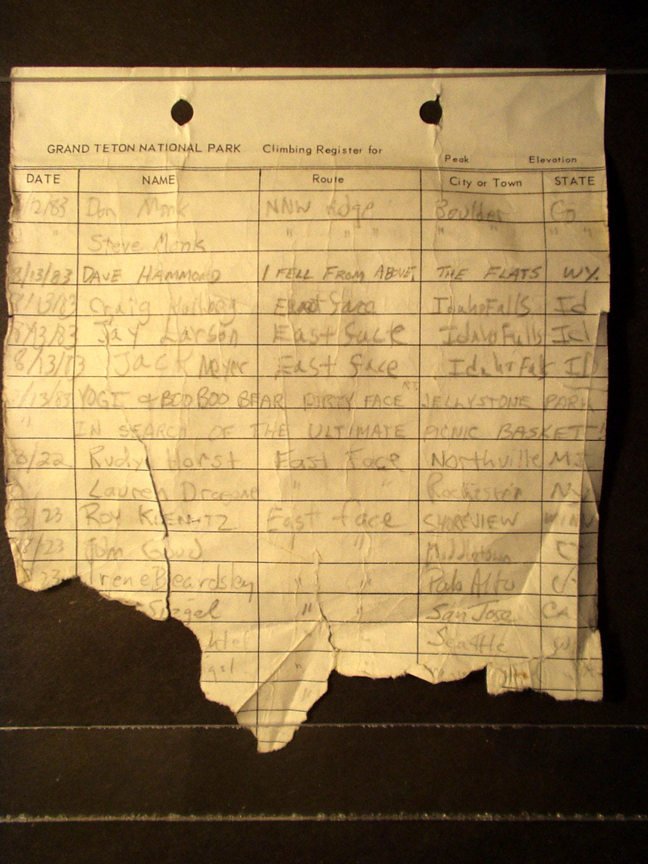 GRAND TETON NATIONAL PARK Climbing Register for Peak Elevation
DATE NAME Route City or Town STATE
/12/83 Don Monk NNW Ridge Boulder Co
" Steve Monk " " " " " "
8/13/83 DAVE HAMMOND I FELL FROM ABOVE, THE FLATS WY.
8/13/83 Craig East face Idaho Falls Id
8/13/83 Jay Larson East face Idaho Falls Id
8/13/83 Jack Meyer East face Idaho Falls Id
/13/83 YOGI & BOO BOO BEAR DIRTY FACE RT. JELLYSTONE PARK
" IN SEARCH OF THE ULTIMATE PICNIC BASKET!
8/22 Rudy Horst East Face Northville MI
Lauren " Rochester NY
8/23 ROY East face SHOREVIEW MINN
8/23 John " Middletown CT
23 Irene Beardsley " Palo Alto
Siegel " San Jose CA
" Seattle
"